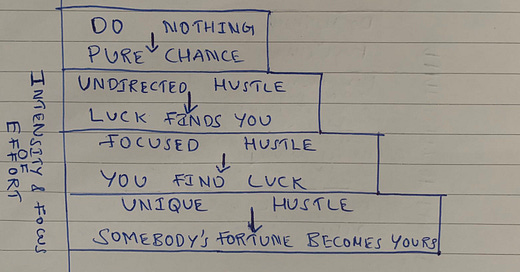 DO NOTHING
PURE CHANCE
UNDIRECTED HUSTLE
LUCK FINDS YOU
FOCUSED HUSTLE
YOU FIND LUCK
UNIQUE HUSTLE
SOMEBODY'S FORTUNE BECOMES YOURS
INTENSITY & FOCUS
OF
EFFORT